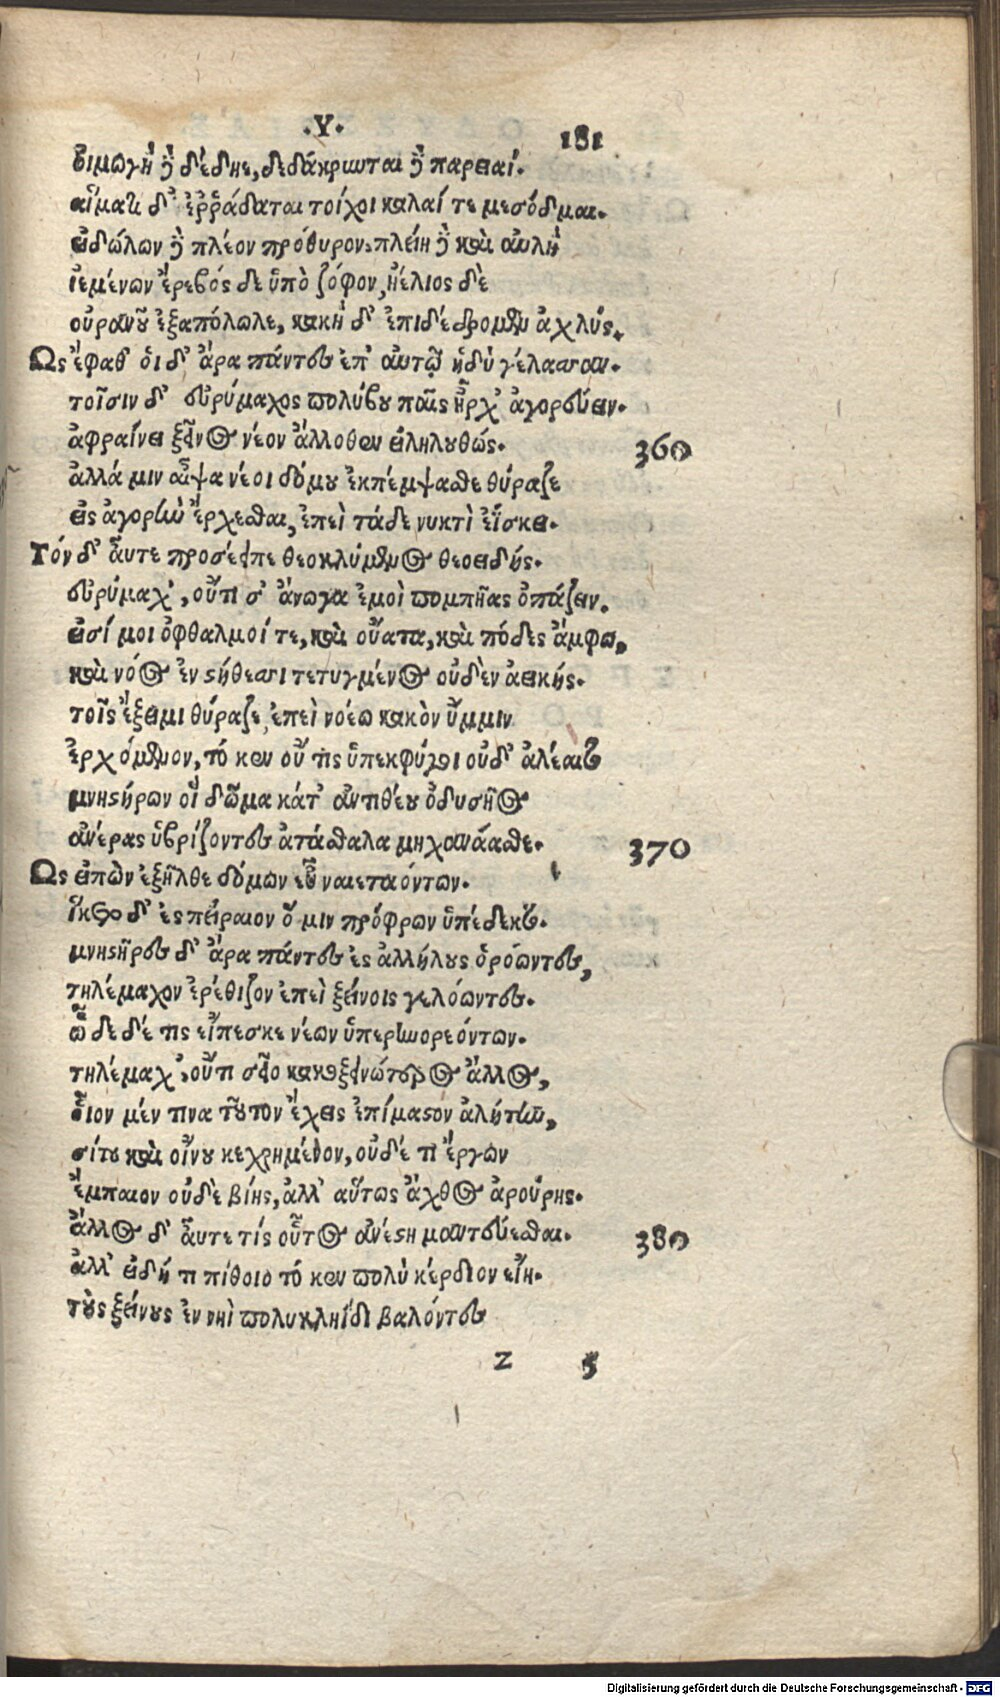 .Υ. 181
οἰμωγὴ δὲ δέδηε, δεδάκρωται δὲ παρειαί.
αἵματι δ' ἐῤῥάδαται τοίχοι καλαί τε μεσόδμαι.
εἰδώλων δὲ πλέον πρόθυρον. πλείη δὲ καὶ αὐλὴ
ἱεμένων ἔρεβός δε ὑπὸ ζόφον, ἠέλιος δὲ
οὐρανοῦ ἐξαπόλωλε, κακὴ δ' ἐπιδέδρομεν ἀχλύς.
Ως ἔφαθ' ὁι δ' ἄρα πάντες ἐπ' αὐτῷ ἡδὺ γέλασσαν.
τοῖσιν δ' εὐρύμαχος πολύβου παῖς ἦρχ' ἀγορεύειν.
ἀφραίνει ξεῖνος νέον ἄλλοθεν εἰληλυθώς. 360
ἀλλά μιν αἶψα νέοι δόμου ἐκπέμψασθε θύραζε
εἰς ἀγορὴν ἔρχεσθαι, ἐπεὶ τάδε νυκτὶ ἐΐσκει.
Τόν δ' αὖτε προσέειπε θεοκλύμενος θεοειδής.
εὐρύμαχ', οὔτι σ' ἄνωγα ἐμοὶ πομπῆας ὀπάζειν.
εἰσί μοι ὀφθαλμοί τε, καὶ οὔατα, καὶ πόδες ἄμφω,
καὶ νόος ἐν στήθεσσι τετυγμένος οὐδὲν ἀεικής.
τοῖς ἔξειμι θύραζε, ἐπεὶ νοέω κακὸν ὔμμιν
ἐρχόμενον, τό κεν οὔ τις ὑπεκφύγοι οὐδ' ἀλέαιτο
μνηστήρων οἳ δῶμα κάτ' ἀντιθέου ὀδυσῆος
ἀνέρας ὑβρίζοντες ἀτάσθαλα μηχανάασθε. 370
Ως εἰπὼν ἐξῆλθε δόμων εὖ ναιεταόντων.
ἵκετο δ' ἐς πείραιον ὅ μιν πρόφρων ὑπέδεκτο.
μνηστῆρες δ' ἄρα πάντες ἐς ἀλλήλους ὁρόωντες,
τηλέμαχον ἐρέθιζον ἐπεὶ ξείνοις γελόωντες.
ὧδε δέ τις εἴπεσκε νέων ὑπερηνορεόντων.
τηλέμαχ', οὔτι σεῖο κακοξεινώτερος ἄλλος,
οἷον μέν τινα τοῦτον ἔχεις ἐπίμαστον ἀλήτην,
σίτου καὶ οἴνου κεχρημένον, οὐδέ τι ἔργων
ἔμπαιον οὐδὲ βίης, ἀλλ' αὔτως ἄχθος ἀρούρης.
ἄλλος δ' αὖτε τίς οὗτος ἀνέστη μαντεύεσθαι. 380
ἀλλ' εἰδή τι πίθοιο τό κεν πολὺ κέρδιον εἴη.
τοὺς ξείνους ἐν νηὶ πολυκληΐδι βαλόντες
Z 5
Digitalisierung gefördert durch die Deutsche Forschungsgemeinschaft - DFG